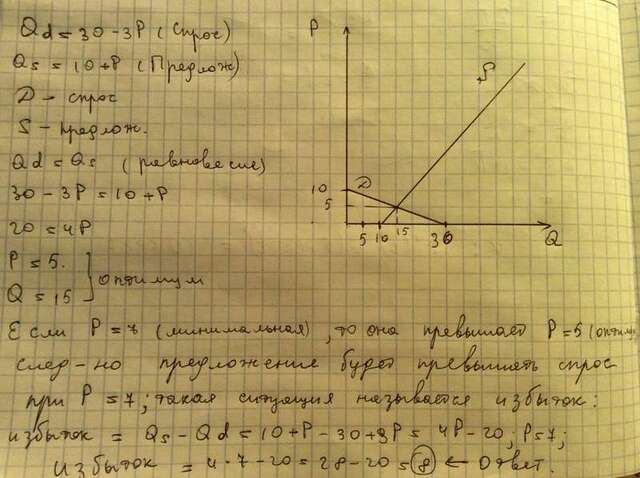 Qd = 30 - 3P (Спрос)
Qs = 10 + P (Предлож)
D - спрос
S - предлож.
Qd = Qs (равновесие)
30 - 3P = 10 + P
20 = 4P
P = 5.
Q = 15
} оптимум
P
S
D
10
5
5
10
15
30
Q
Если P = 7 (минимальная), то она превышает P = 5 (оптим
след-но предложение будет превышать спрос
при P = 7; такая ситуация называется избыток:
избыток = Qs - Qd = 10 + P - 30 + 3P = 4P - 20; P = 7;
Избыток = 4 · 7 - 20 = 28 - 20 = 8 ← Ответ.